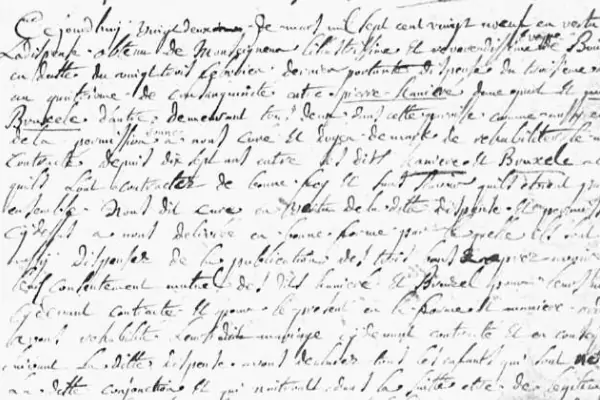 Ce jourdhuy vingtdeux de mars mil sept cent vingt neuf en vertu
La dispense obtenu de Monseigneur illustrissime et reverendissime
en datte du vingt trois fevrier dernier portante dispense du troisieme
au quatrieme de consanguinité entre pierre Laniere d'une part et
Bruxele d'autre demeurant tous deux dans cette paroisse comme aussy
de la permission donnee a nous cure et doyen de de rehabiliter le
contracté depuis dix sept ans entre les dits Laniere et Bruxele
quils l'ont contracter de bonne foy et sont quils etoient
ensemble. Nous dit cure en vertu de la ditte dispense et permission
cydessus a nous delivrée en bonne forme par
aussy dispenser de la publication des trois bans apres
les consentement mutuel des dits Laniere et Bruxel pour leur
cydevant contracté et pour le present en la forme et maniere
avons rehabilité leurs dits mariage cydevant contracté et en
suivant la ditte dispense avons declarer tous les enfants qui sont nes
de la ditte conjonction et qui naitront dans la suitte etre de legitime